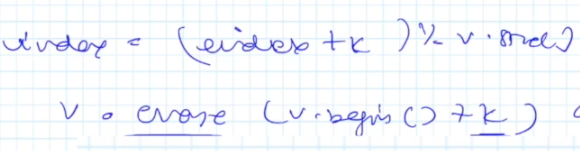 index = (index + k) % v.size()
v.erase (v.begin() + k)